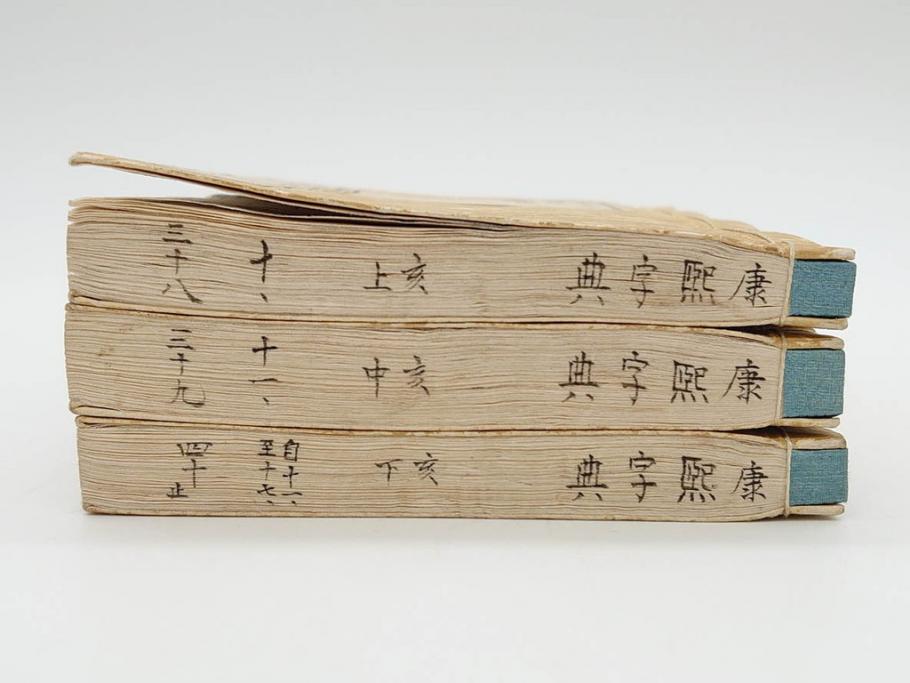 康熙字典 亥上 十、 三十八
康熙字典 亥中 十一、 三十九
康熙字典 亥下 自十一、至十七、 四十止